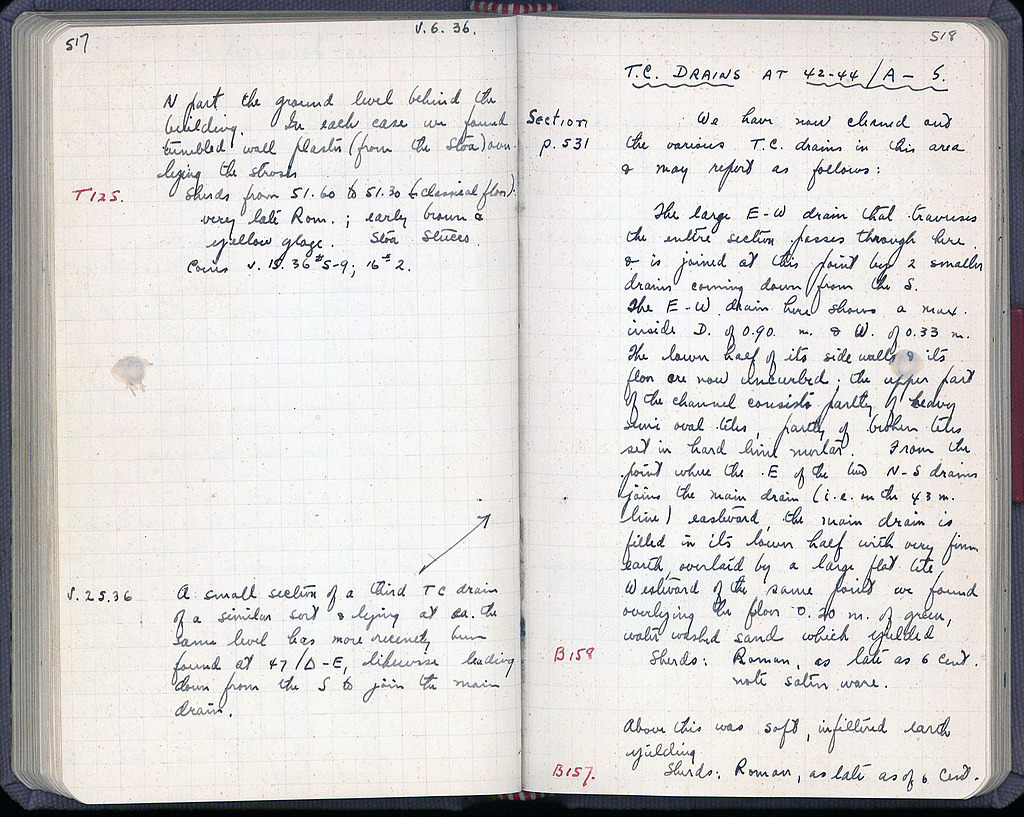 517
V.6.36.
N part the ground level behind the
building. In each case we found
tumbled wall plaster (from the Stoa) over-
lying the stroses
T125.
Sherds from 51.60 to 51.30 (classical floor):
very late Rom.; early brown &
yellow glaze. Stoa Stucco.
Coins V.15.36 #5-9; 16 #2.
V.25.36
A small section of a third TC drain
of a similar sort & lying at ca. the
same level has more recently been
found at 47/Δ-E, likewise leading
down from the S to join the main
drain.
518
T.C. DRAINS AT 42-44/A-5.
Section
p. 531
We have now cleaned out
the various T.C. drains in this area
& may report as follows:
The large E-W drain that traverses
the entire section passes through here
& is joined at this point by 2 smaller
drains coming down from the S.
The E-W drain here shows a max.
inside D. of 0.90 m. & W. of 0.33 m.
The lower half of its side walls & its
floor are now uncurbed; the upper part
of the channel consists partly of heavy
semi oval tiles, partly of broken tiles
set in hard lime mortar. From the
point where the E of the two N-S drains
joins the main drain (i.e. on the 43 m.
line) eastward, the main drain is
filled in its lower half with very firm
earth, overlaid by a large flat tile.
Westward of the same point we found
overlying the floor 0.20 m. of green,
water washed sand which yielded
B158
Sherds: Roman, as late as 6 cent.
note satin ware.
Above this was soft, infiltered earth
yielding
B157.
Sherds: Roman, as late as of 6 Cent.